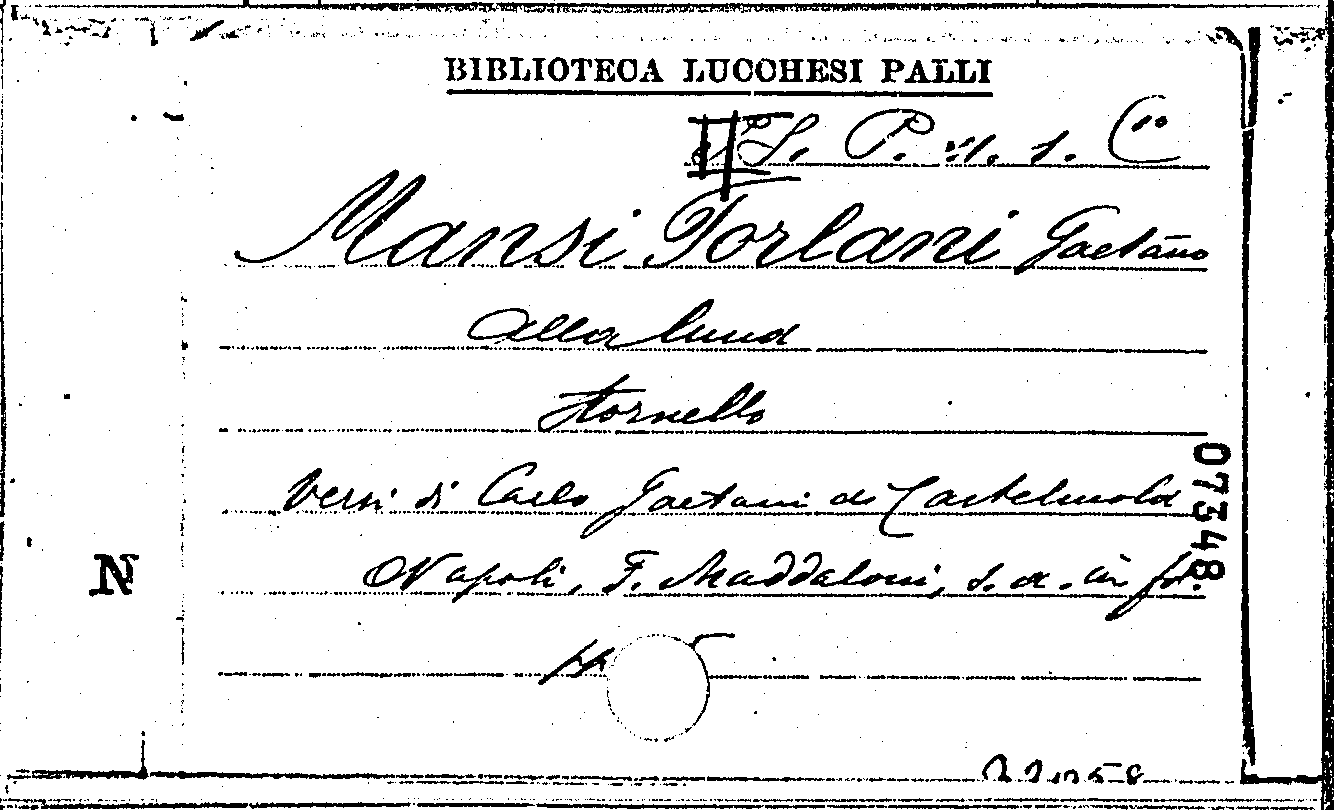 BIBLIOTECA LUCCHESI PALLI
S. P. n. s. C
Mansi Torlani Gaetano
Alla luna
Stornello
Versi di Carlo Gaetani di Castelmola
Napoli, F. Maddaloni, s. a. in fol.
pp. 5
07348
N